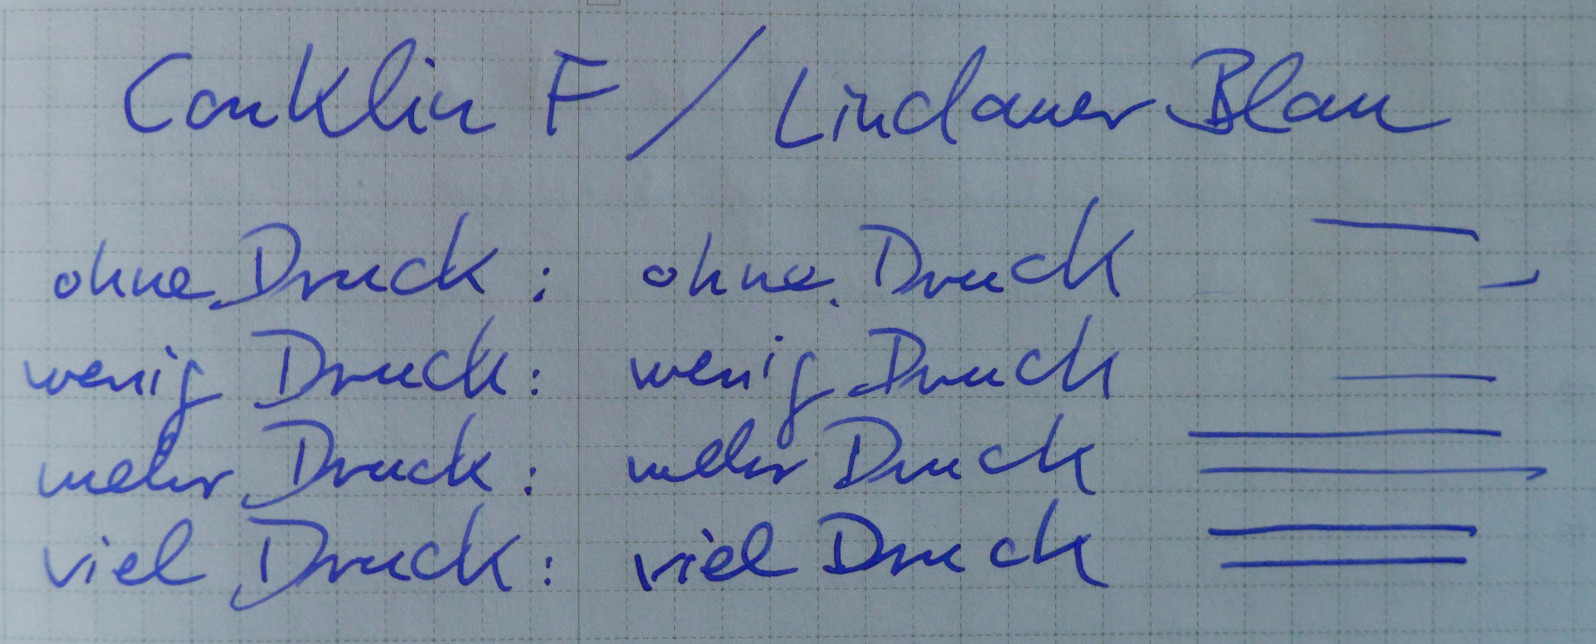 Conklin F / Lindauer Blau
ohne Druck : ohne Druck
wenig Druck : wenig Druck
mehr Druck : mehr Druck
viel Druck : viel Druck